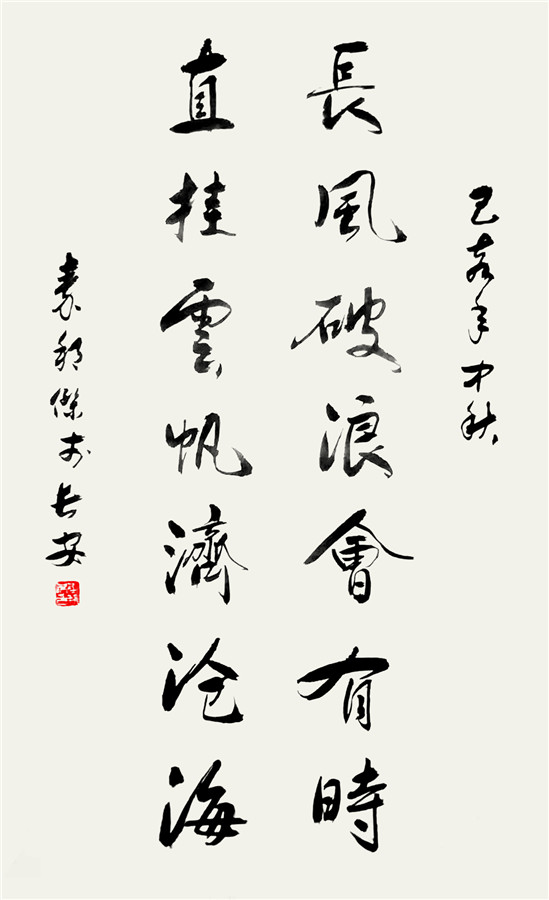 己亥年中秋
長風破浪會有時
直挂雲帆濟沧海
袁傑於长安